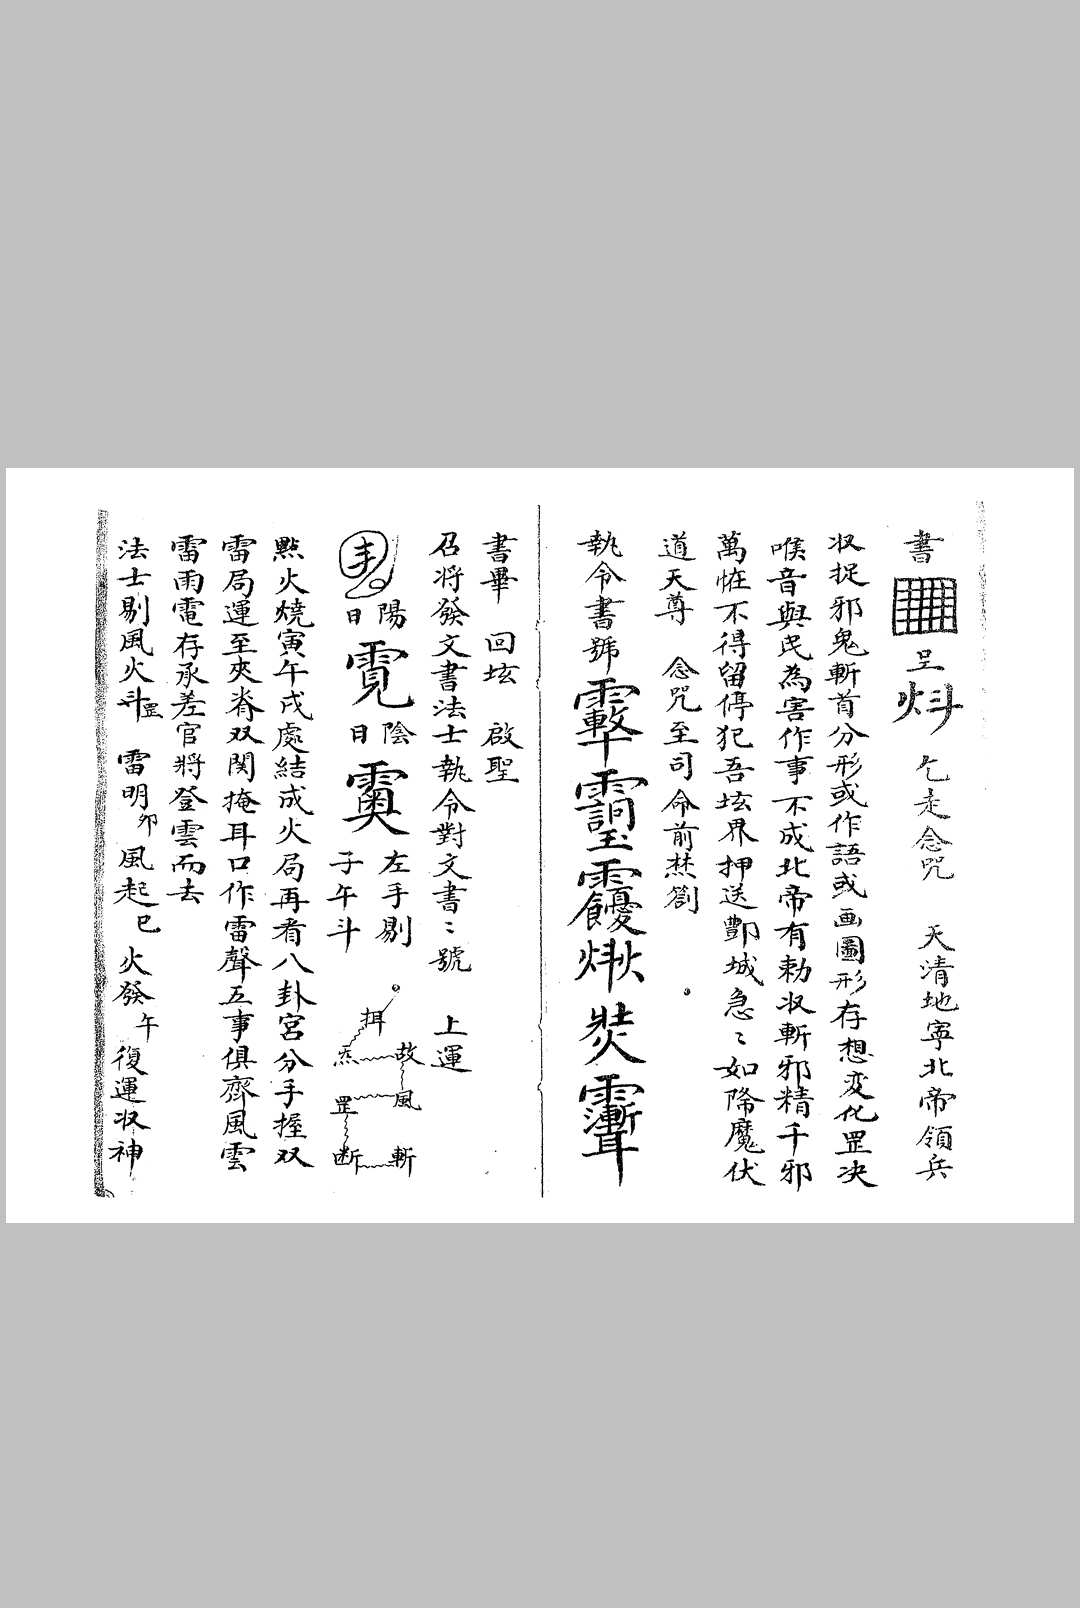 書 呈 炓 乞走念咒 天清地寧北帝領兵
収捉邪鬼斬首分形或作語或画圖形存想変化罡决
喉音與民為害作事不成北帝有勅収斬邪精千邪
萬怪不得留停犯吾垓界押送酆城急〻如降魔伏
道天尊 念咒至司命前焚劄
執令書號
書畢 回垓 啟聖
召将發文書法士執令對文書〻號 上運
陽日 霓 陰日 左手剔 子午斗
故 風 罡 断 斬
㸃火燒寅午戌處結成火局再看八卦宮分手握双
雷局運至夾脊双関掩耳口作雷聲五事俱齊風雲
雷雨電存承差官將登雲而去
法士剔風火斗罡 雷明卯 風起巳 火發午 復運収神